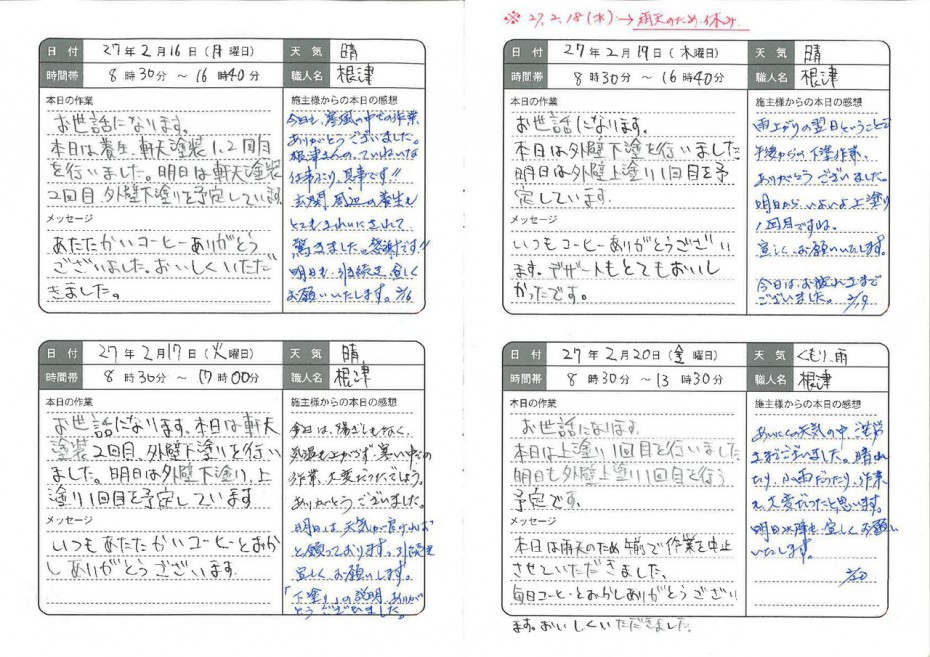 ※27.2.18(水)→雨天のため休み
日付 27年2月16日(月曜日) 天気 晴
時間帯 8時30分～16時40分 職人名 根津
本日の作業
お世話になります。
本日は養生、軒天塗装1、2回目
を行いました。明日は軒天塗装
2回目、外壁下塗りを予定しています
メッセージ
あたたかいコーヒーありがとう
ございました。おいしくいただ
きました。
施主様からの本日の感想
今日も、寒風の中での作業、
ありがとうございました。
根津さんの、ていねいな
仕事ぶり、見事です!!
玄関周辺の養生も
とてもきれいにされて
驚きました。感謝です!!
明日も、引き続き、宜しく
お願いいたします。2/16
日付 27年2月17日(火曜日) 天気 晴
時間帯 8時30分～17時00分 職人名 根津
本日の作業
お世話になります。本日は軒天
塗装2回目、外壁下塗りを行い
ました。明日は外壁下塗り、上
塗り1回目を予定しています
メッセージ
いつもあたたかいコーヒーとおか
しありがとうございます。
施主様からの本日の感想
今日は、陽ざしもなく、
気温も上がらず、寒い中での
作業、大変だったでしょう。
ありがとうございました。
明日は、天気が
と願っております。引き続き
宜しくお願いします。
「下塗り」の説明、ありが
とうございました。
日付 27年2月19日(木曜日) 天気 晴
時間帯 8時30分～16時40分 職人名 根津
本日の作業
お世話になります。
本日は外壁下塗を行いました
明日は外壁上塗り1回目を予
定しています。
メッセージ
いつもコーヒーありがとうござい
ます。デザートもとてもおいし
かったです。
施主様からの本日の感想
雨上がりの翌日ということで
午後からの下塗作業、
ありがとうございました。
明日から、いよいよ上塗り
1回目ですね。
宜しくお願いいたします。
今日は、お疲れさまで
ございました。2/19
日付 27年2月20日(金曜日) 天気 くもり、雨
時間帯 8時30分～13時30分 職人名 根津
本日の作業
お世話になります。
本日は上塗り1回目を行いました
明日も外壁上塗り1回目を行う
予定です。
メッセージ
本日は雨天のため午前で作業を中止
させていただきました。
毎日コーヒーとおかしありがとうござい
ます。おいしくいただきました。
施主様からの本日の感想
あいにくの天気の中、お疲れ
さまでございました。晴れ
たり、小雨だったり、作業
も、大変だったと思います。
明日以降も、宜しくお願い
いたします。
2/20